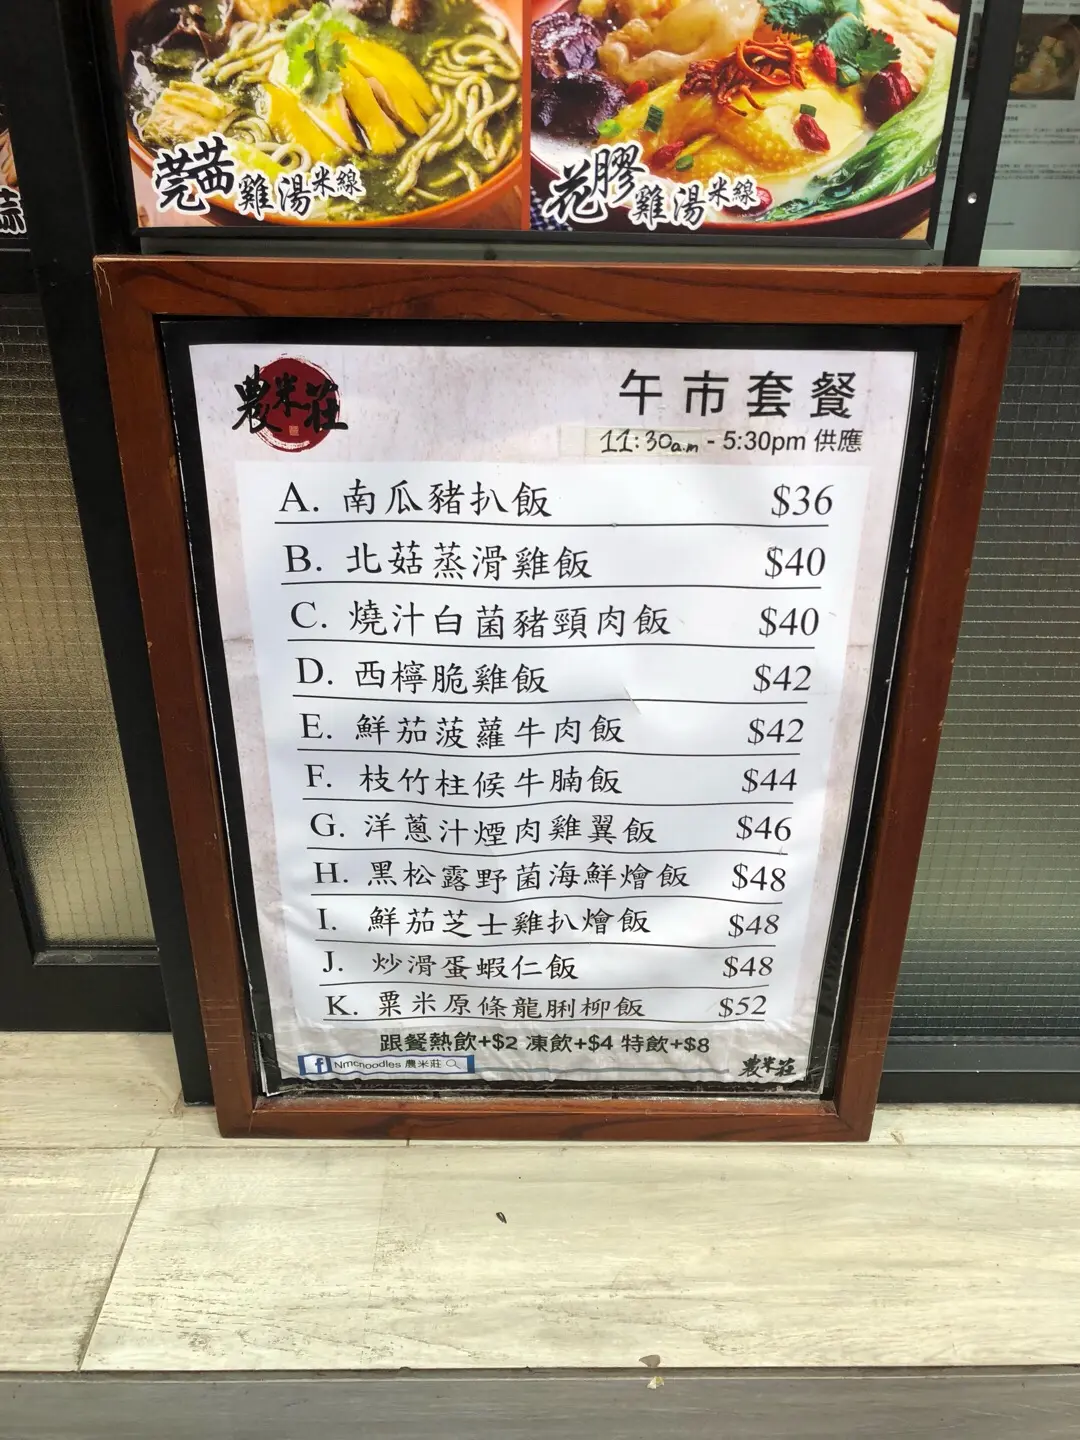 芫茜雞湯米線
花膠雞湯米線
農米莊
午市套餐
11:30a.m - 5:30pm 供應
A. 南瓜豬扒飯 $36
B. 北菇蒸滑雞飯 $40
C. 燒汁白菌豬頸肉飯 $40
D. 西檸脆雞飯 $42
E. 鮮茄菠蘿牛肉飯 $42
F. 枝竹柱候牛腩飯 $44
G. 洋蔥汁煙肉雞翼飯 $46
H. 黑松露野菌海鮮燴飯 $48
I. 鮮茄芝士雞扒燴飯 $48
J. 炒滑蛋蝦仁飯 $48
K. 粟米原條龍脷柳飯 $52
跟餐熱飲+$2 凍飲+$4 特飲+$8
f Nmcnoodles 農米莊
農米莊